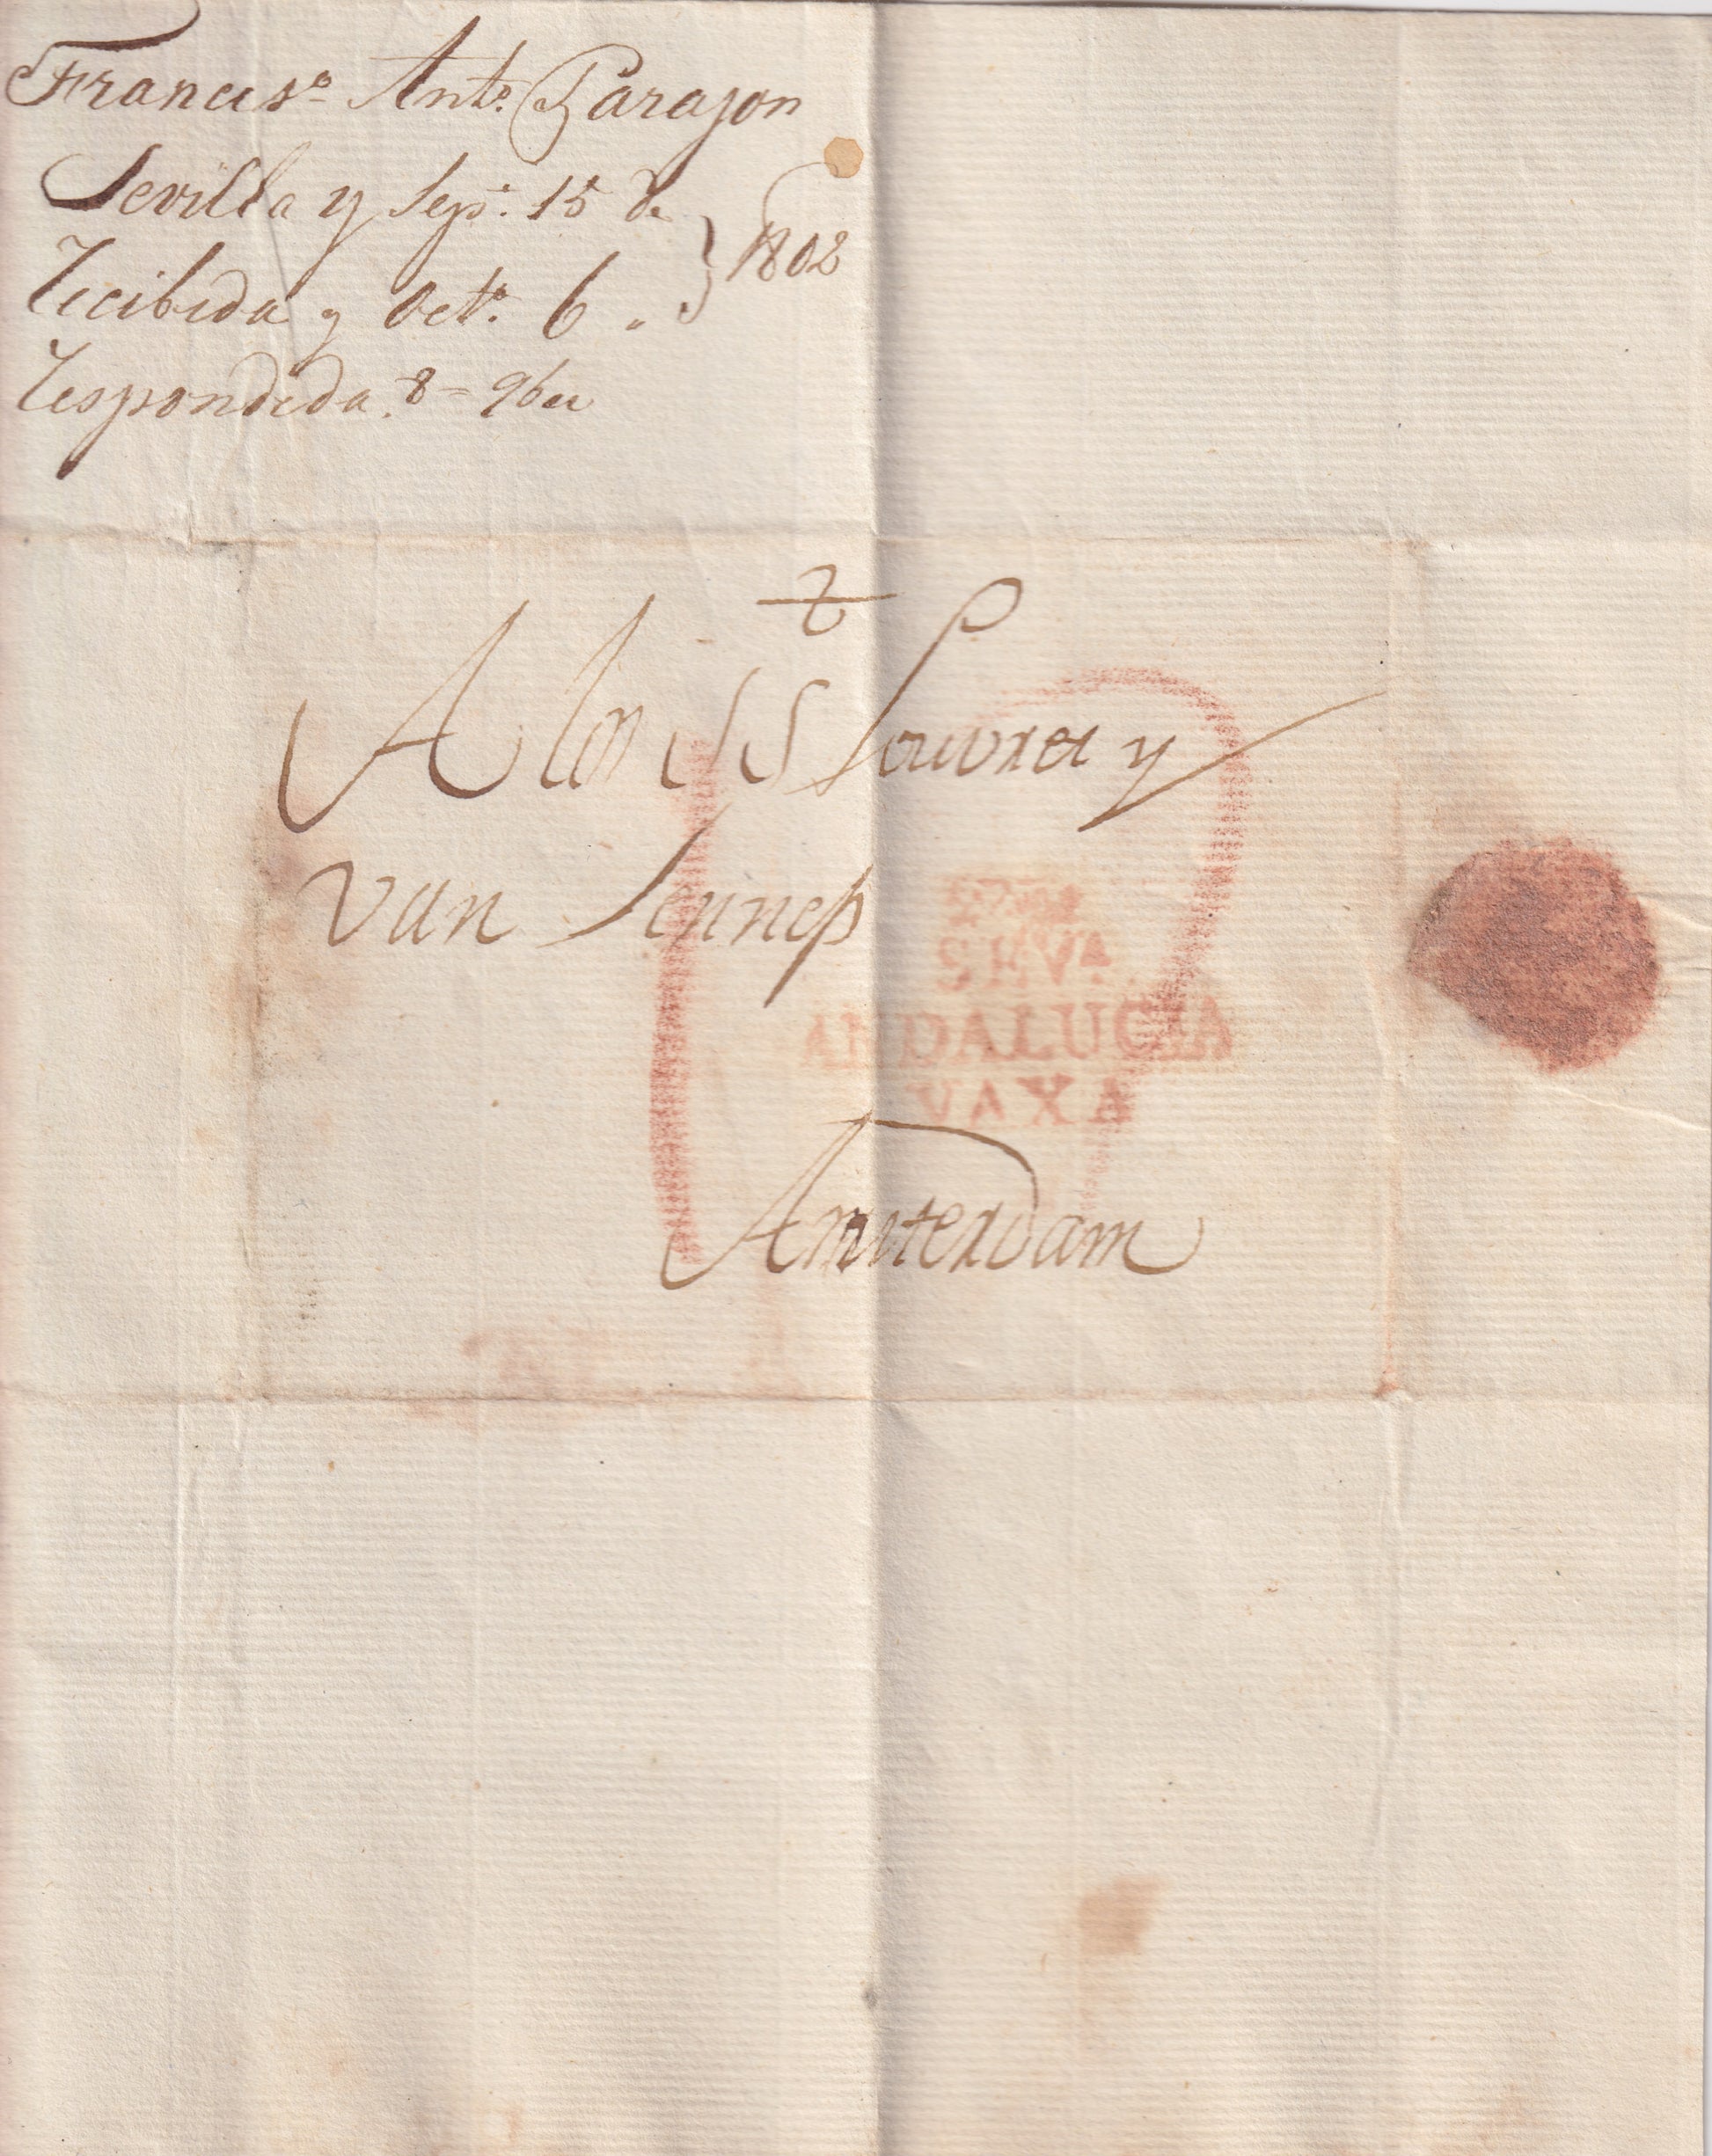 Francisº Antº Parajon
Sevilla y Sepe. 15 de
recibida y Octe. 6 " } 1802
respondida. 8 = 9ber
A los SS Louvret y
van Sennep
SEVA
ANDALUCIA
VAXA
Amsterdam